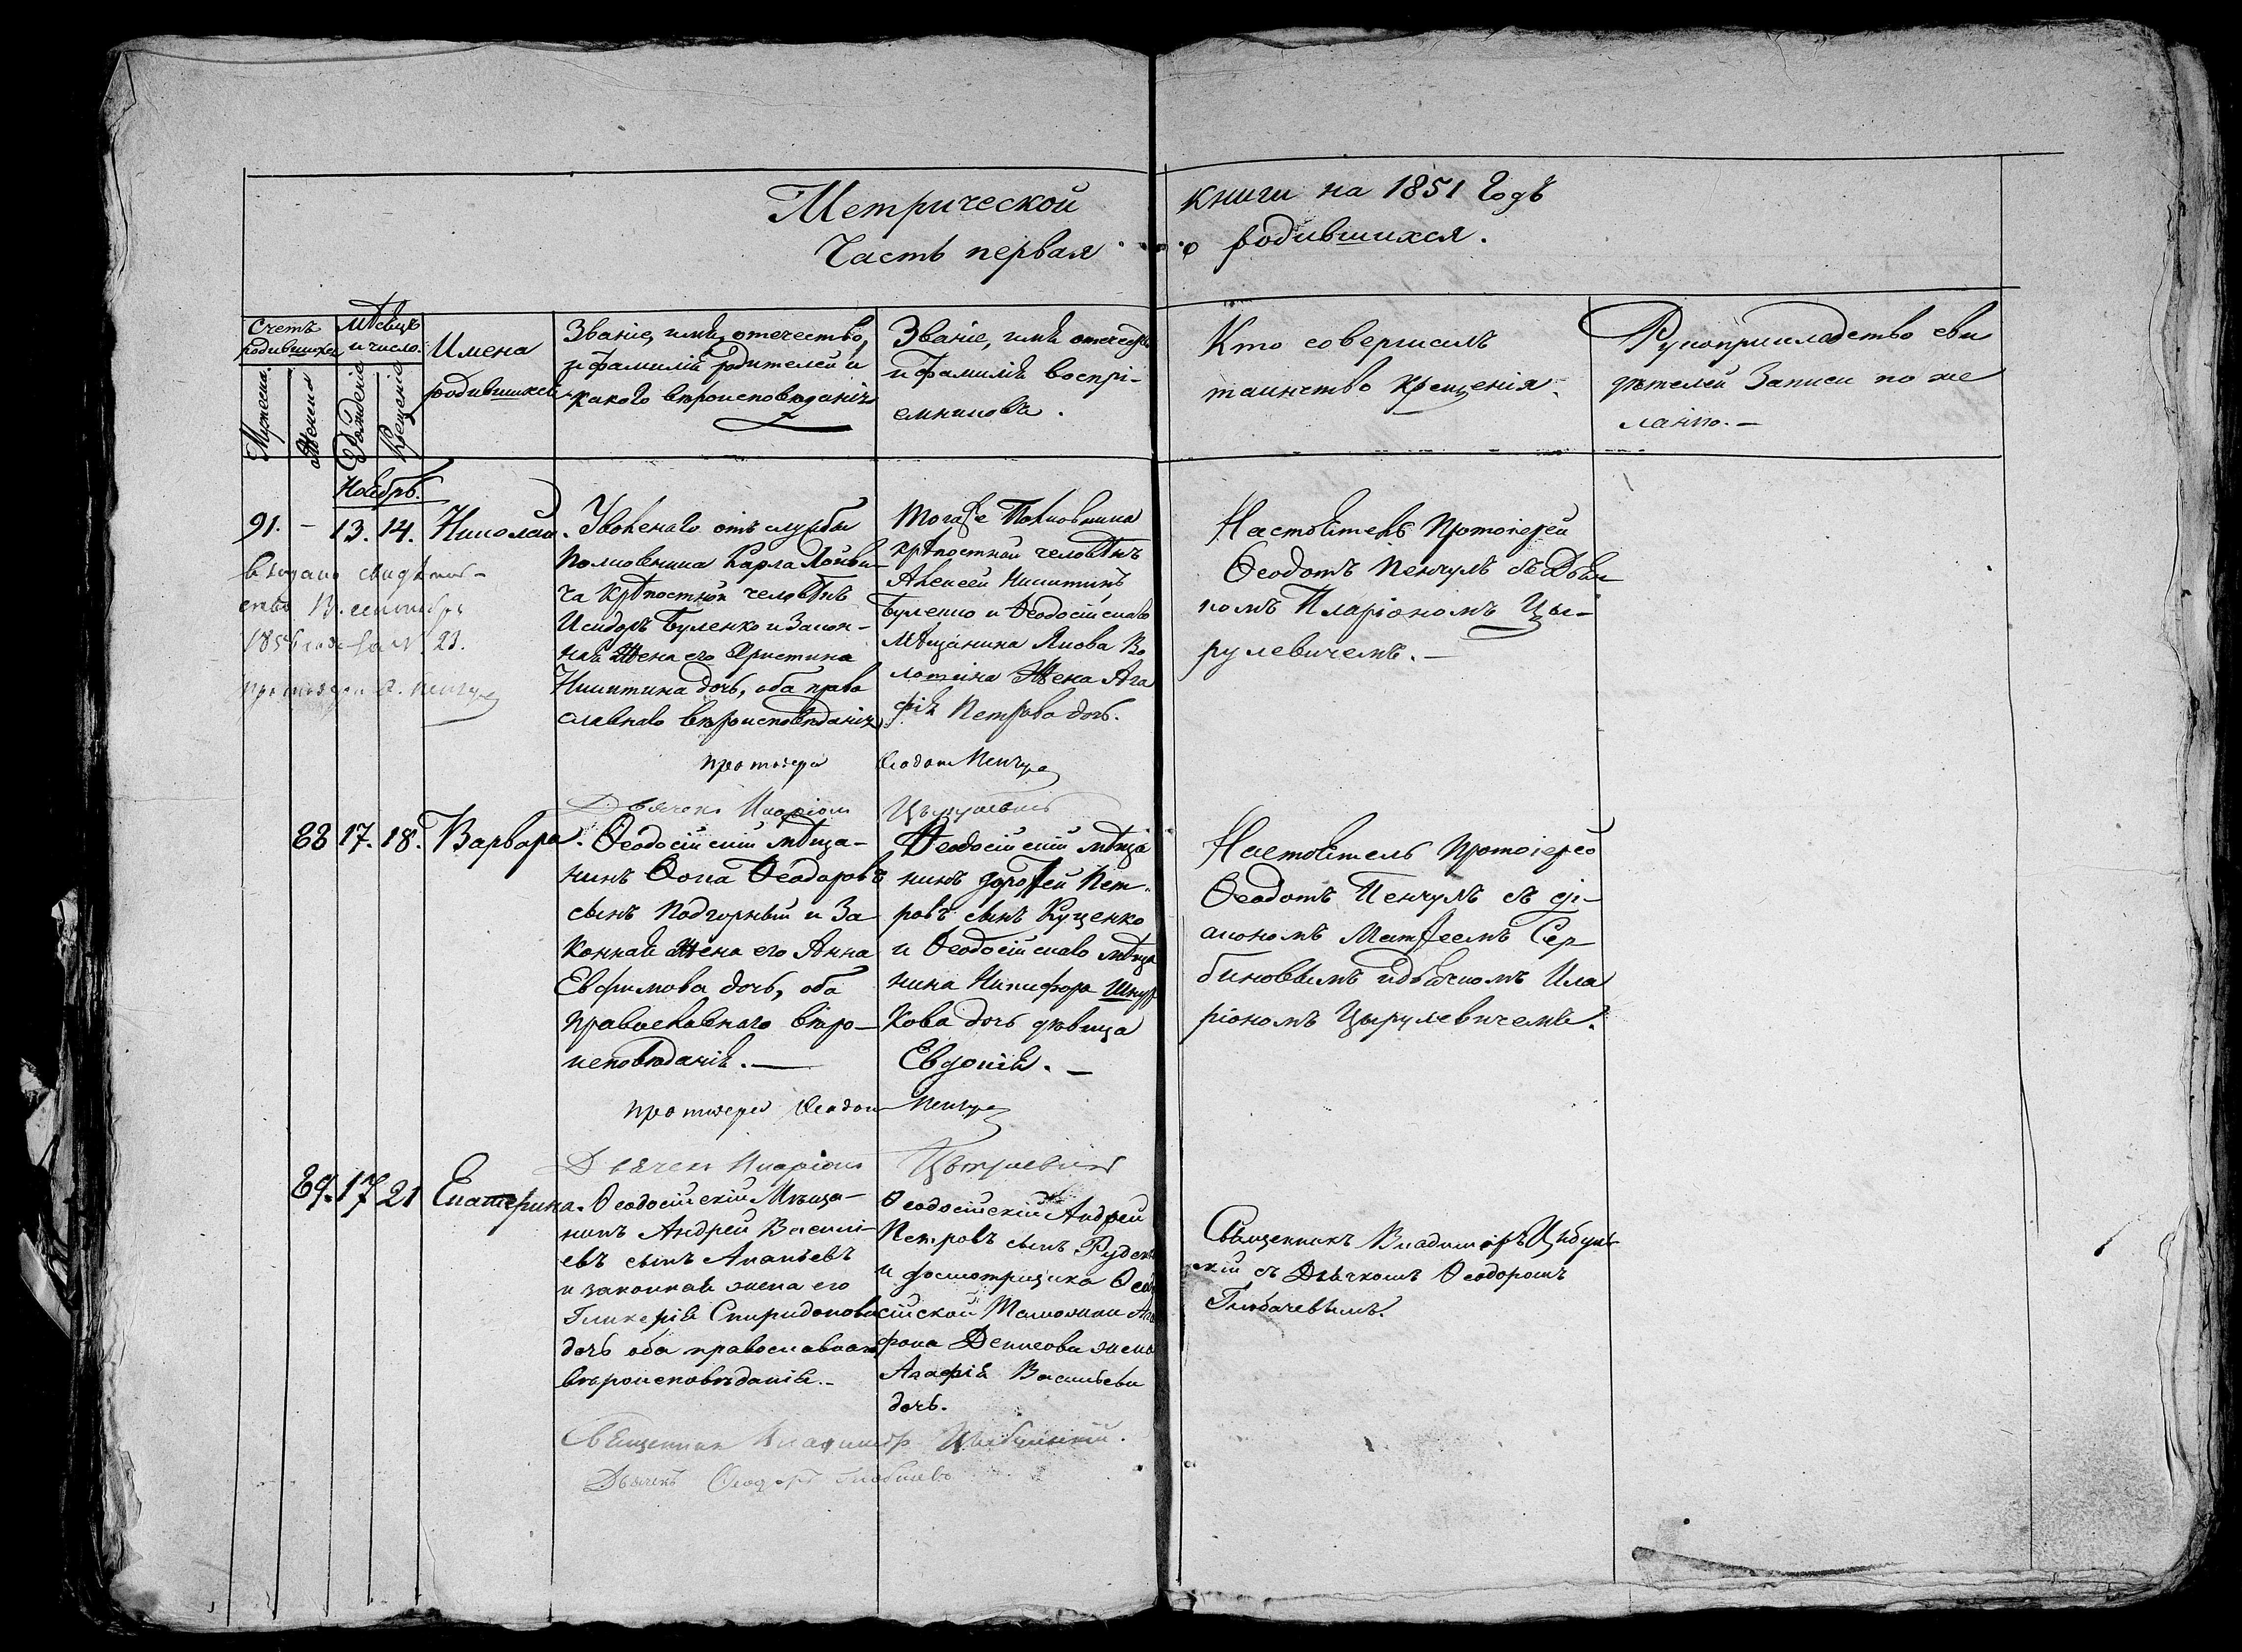 Метрической книги на 1851 Годъ
Часть первая о родившихся.
Счетъ родившихся
Мужеска.
Женска
Мѣсяцъ и число.
Рожденіе
Крещеніе
Имена
родившихся
Званіе, имя, отечество,
и фамилія родителей и
какого вѣроисповѣданія
Званіе, имя отечество
и фамилія воспрі-
емниковъ.
Кто совершалъ
таинство крещенія.
Рукоприкладство сви
дѣтелей Записи по же
ланію.
Ноябрь.
91. – 13. 14. Николай.
выдано свидѣтель-
ство
23.
Уволенаго отъ службы
Полковника Карла
ча Крѣпостной человѣкъ
Исидоръ Буленко и Закон-
ная Жена его Христина
Никитина дочь, оба право
славнаго вѣроисповѣданія
Тогоже Полковника
крѣпостной человѣкъ
Алексей Никитинъ
Буленко и Ѳеодосійскаго
Мѣщанина Якова Во
Жена Ага
фія Петрова дочь.
Настоятель Протоіерей
Ѳеодотъ Пенчулъ съ Дьяч
комъ Иларіономъ Цы-
рулевичемъ.
протоіерей Ѳеодотъ Пенчулъ
Дьячекъ Иларіонъ Цырулевичъ
88 17. 18. Варвара.
Ѳеодосійскій мѣща-
нинъ Ѳома Ѳеодоровъ
сынъ Подгорный и За
конная Жена его Анна
Евфимова дочь, оба
Православнаго вѣро-
исповѣданія.
Ѳеодосійскій мѣща
нинъ Дорофей Пет-
ровъ сынъ Куценко
и Ѳеодосійскаго мѣща
нина Никифора Шнур
кова дочь дѣвица
Евдокія.
Настоятель Протоіерей
Ѳеодотъ Пенчулъ съ ді-
акономъ Матфеемъ Сер
биновымъ и дьячкомъ Ила
ріономъ Цырулевичемъ.
протоіерей Ѳеодотъ Пенчулъ
Дьячекъ Иларіонъ Цырулевичъ
89. 17 21 Екатерина.
Ѳеодосійскій Мѣща-
нинъ Андрей Василі-
евъ сынъ Ананьевъ
и законная жена его
Гликерія Спиридонова
дочь оба православнаго
вѣроисповѣданія.
Ѳеодосійскій Андрей
Петровъ сынъ Руденко
и досмотрщика Ѳеодо
сійской Таможни Ага
фона Денисова жена
Агафія Васильева
дочь.
Священникъ Владиміръ Цыбуль
скій съ Дьячкомъ Ѳеодоромъ
Глобачевымъ.
Священникъ Владиміръ Цыбульскій.
Дьячекъ Ѳеодоръ Глобачевъ